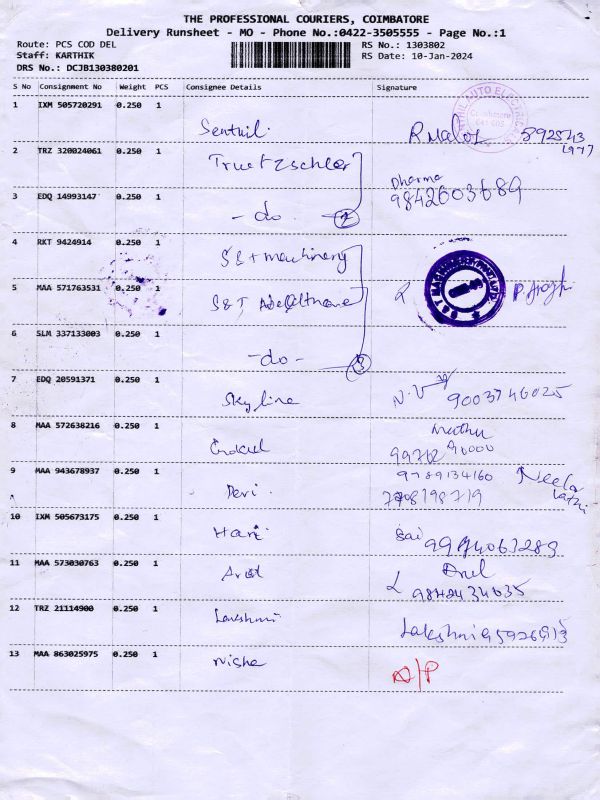 THE PROFESSIONAL COURIERS, COIMBATORE
Delivery Runsheet - MO - Phone No.:0422-3505555 - Page No.:1
Route: PCS COD DEL
RS No.: 1303802
Staff: KARTHIK
RS Date: 10-Jan-2024
DRS No.: DCJB130380201
S No Consignment No Weight PCS Consignee Details Signature
1 IXM 505720291 0.250 1
Senthil
2 TRZ 320824061 0.250 1 Truetzschler
Dharma
3 EDQ 14993147 0.250 1 9842603689
- do - 2
4 RKT 9424914 0.250 1 S&T machinery
5 MAA 571763531 0.250 1 S&T
6 SLM 337133003 0.250 1
- do - 3
7 EDQ 20591371 0.250 1 Skyline 9003746025
8 MAA 572638216 0.250 1 Muthu
99762 90000
9 MAA 943678937 0.250 1 9789134160 Neela
Devi 7708198719
10 IXM 505673175 0.250 1 Hari Sai
11 MAA 573030763 0.250 1
12 TRZ 21114900 0.250 1 Lakshmi
Lakshmi
13 MAA 863025975 0.250 1 Nisha N/P